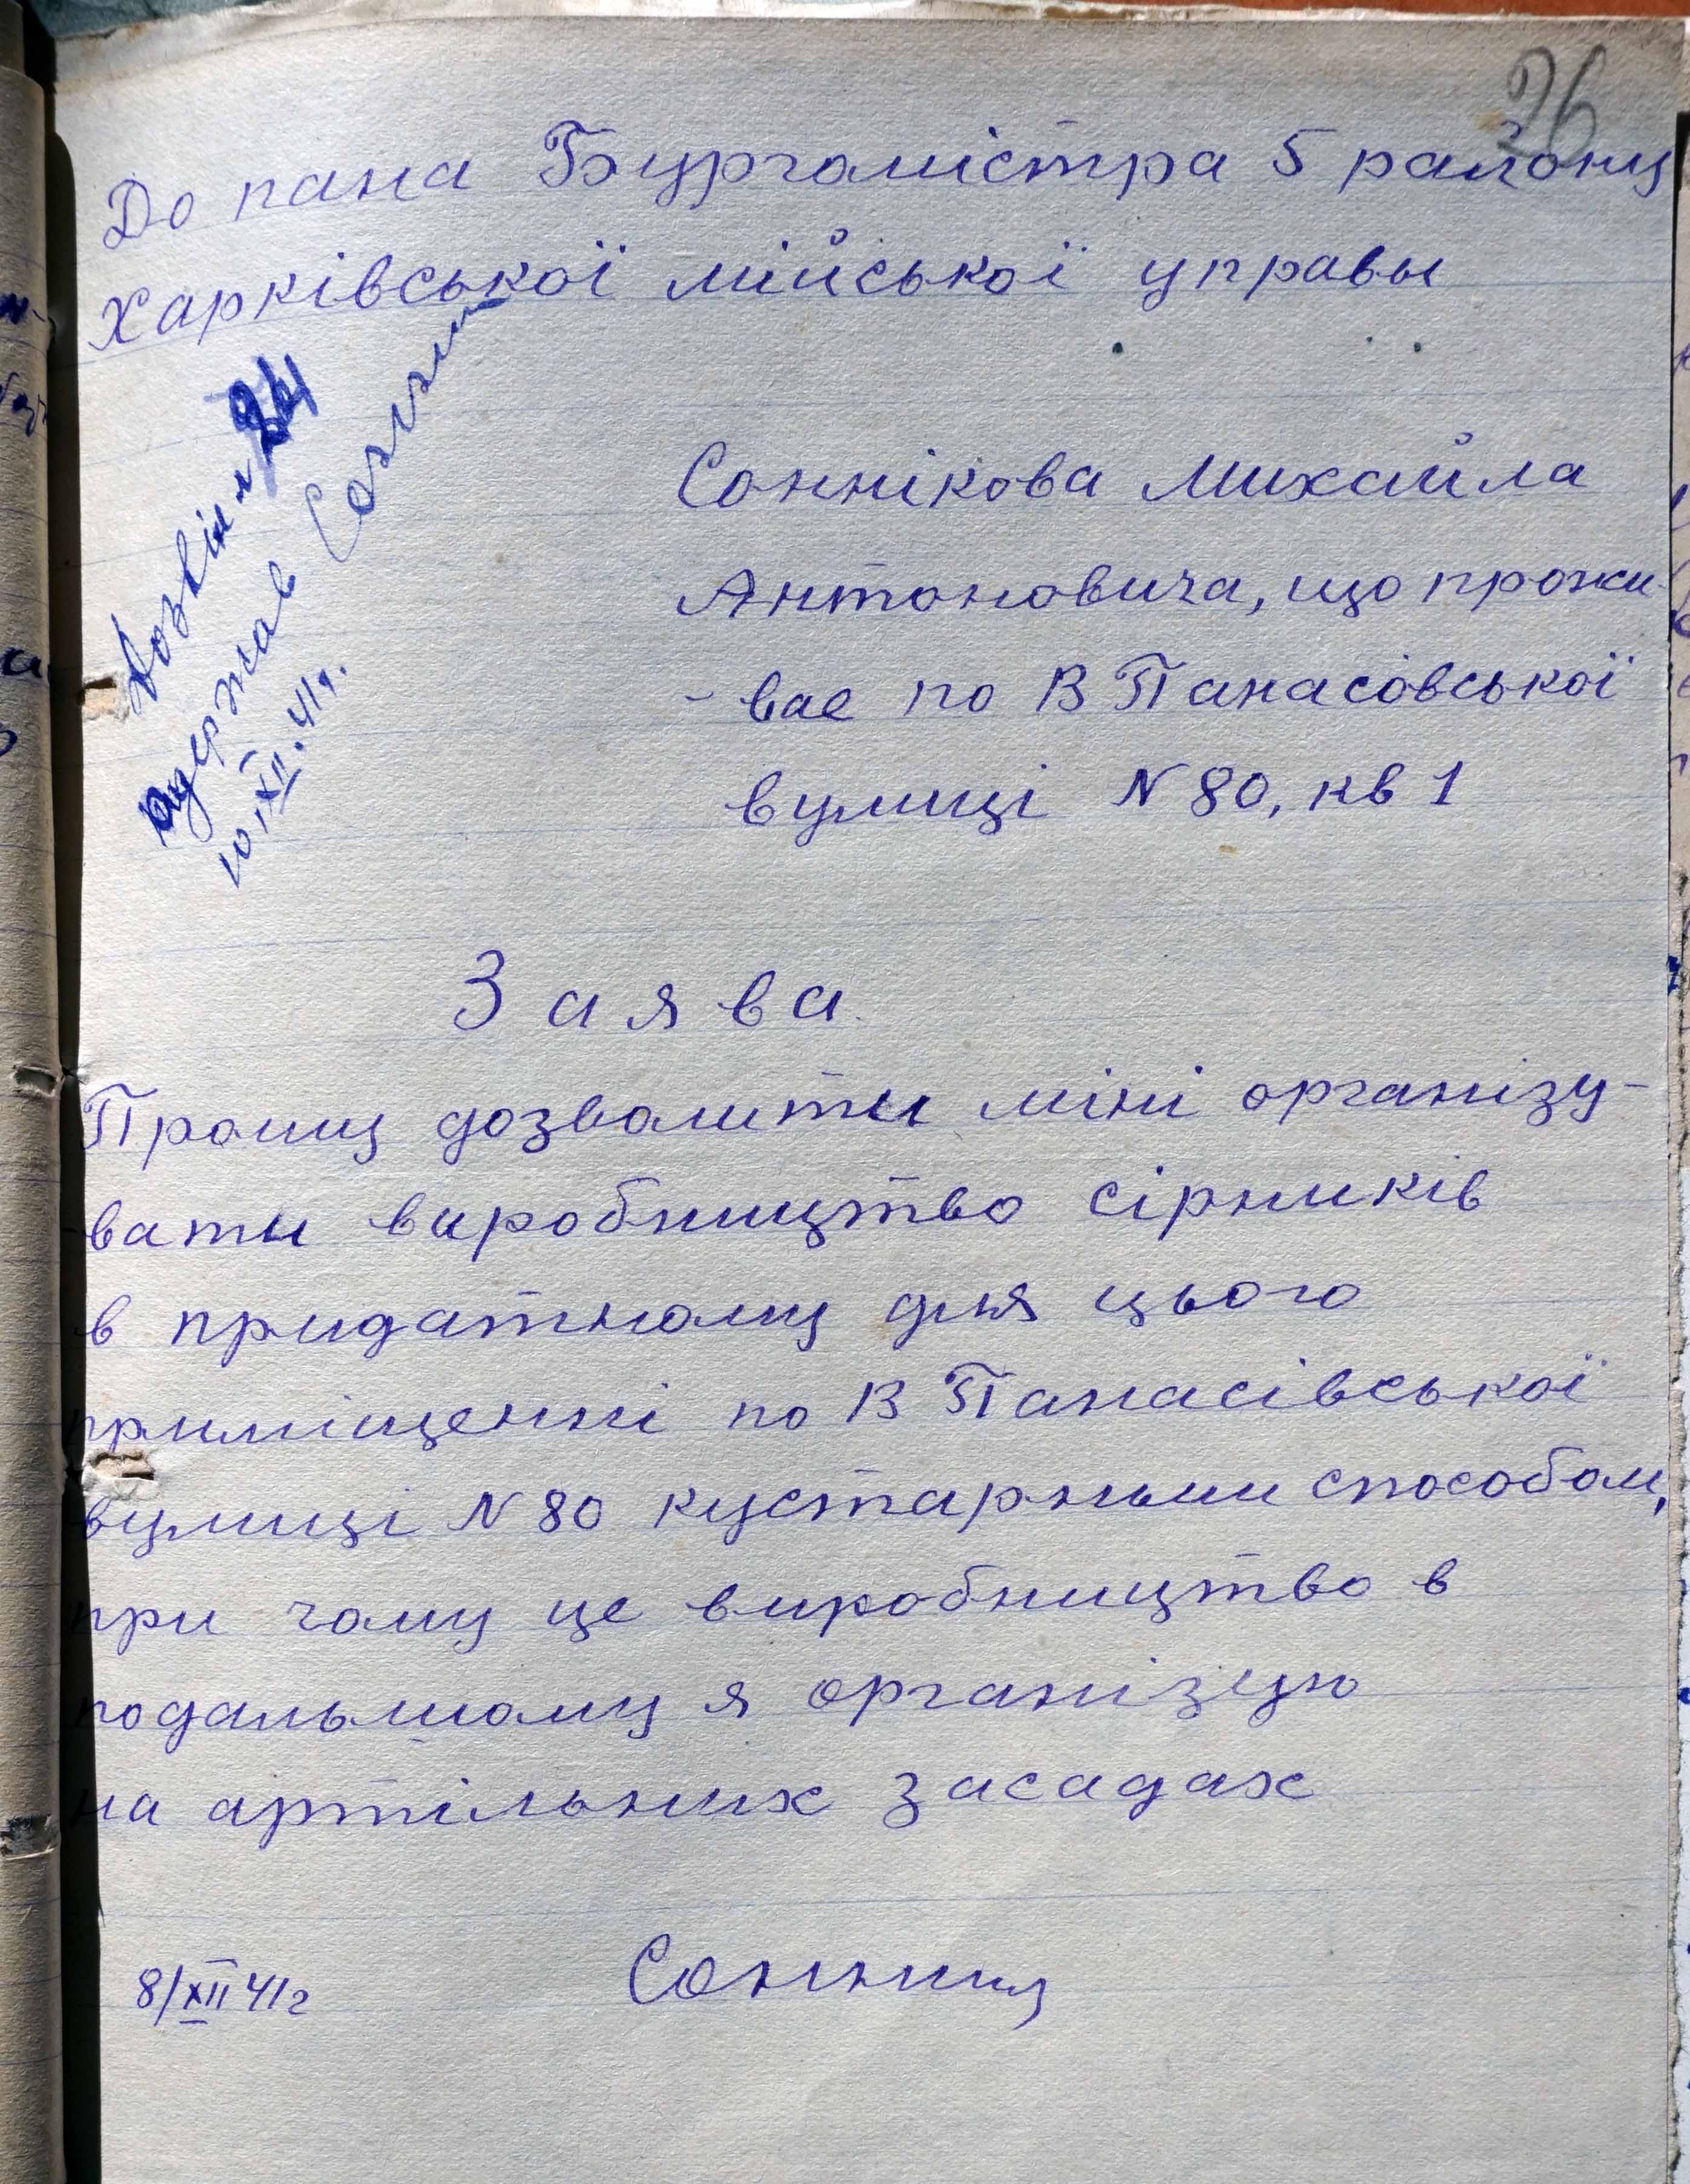 26
До пана Бургомістра 5 району
Харківської мійської управы
Дозвіл № 24
одержав
10.XII.41г.
Соннікова Михайла
Антоновича, що прожи-
- вае по В Панасовської
вулиці N 80, кв 1
Заява
Прошу дозволити міні організу-
вати виробництво сірників
в придатному для цього
приміщенні по В Панасівської
вулиці N 80 кустарным способом,
при чому це виробництво в
подальшому я організую
на артільних засадах
8/XII 41г